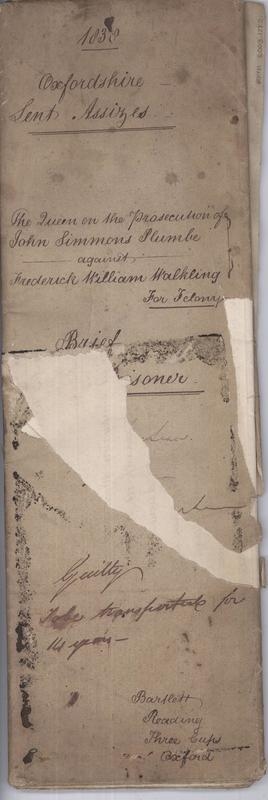 1838
Oxfordshire
Lent Assizes
The Queen on the Prosecution of
John Simmons Plumbe
against
Frederick William Walkling
For Felony
Brief
isoner.
Guilty
To be transported for
14 years
Bartlett
Reading
Three Cups
Oxford